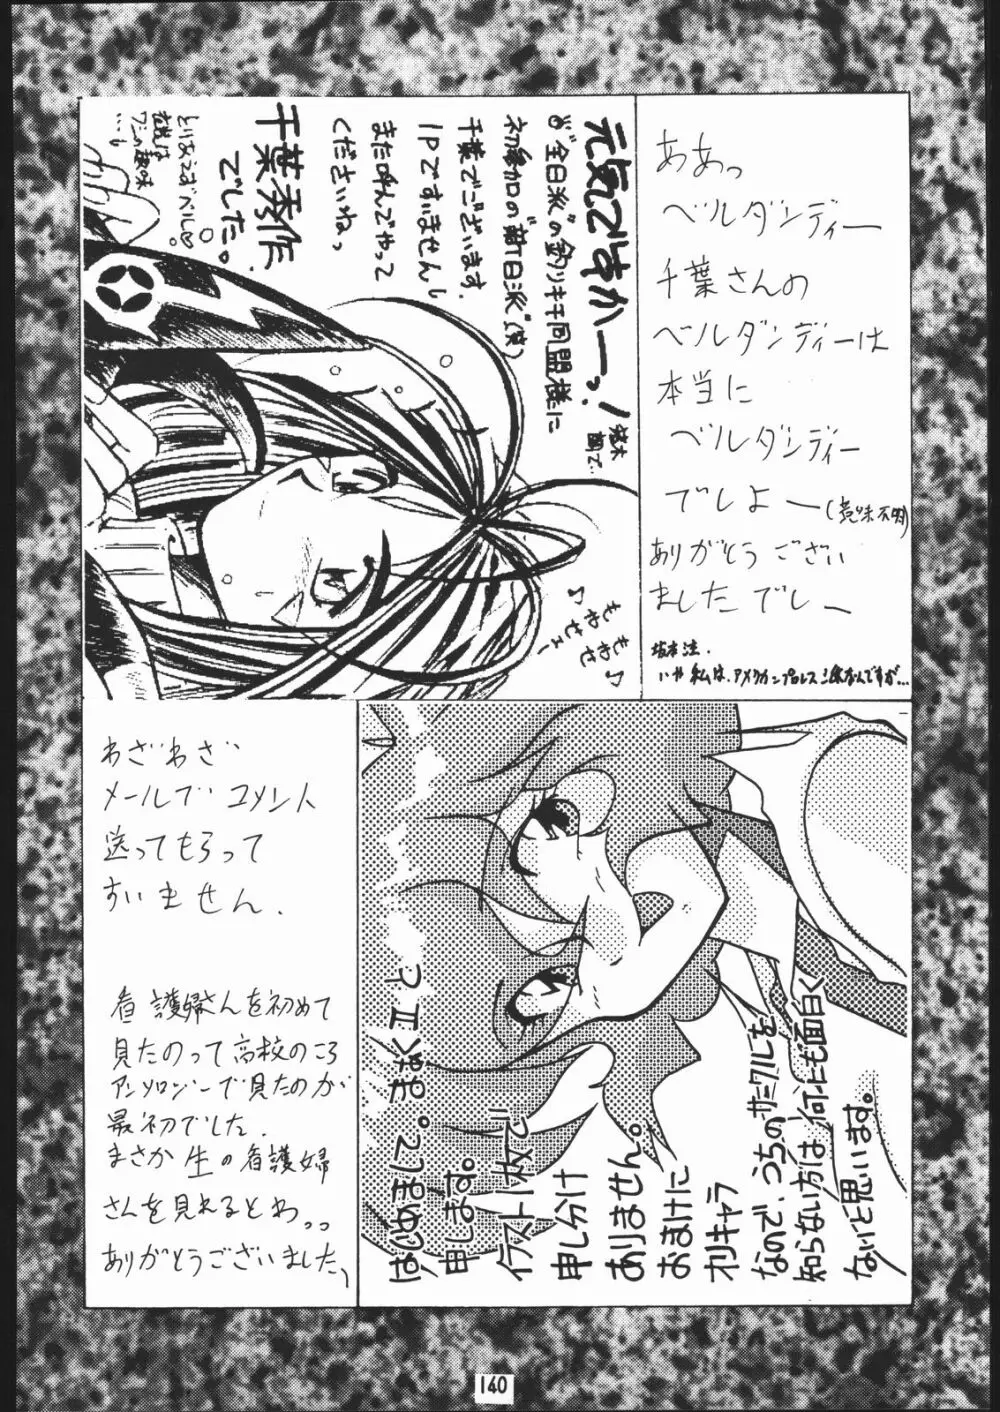 元気ですかーっ!
"全日派"の釣りキチ同盟様に
初参加の"新日派"(笑)
千葉でございます。
1Pですいませんし
また呼んでやって
くださいねっ
千葉秀作
でした。
とりあえずベルでし♡
もわせェ〜♪
もわせ♪
ああっ
ベルダンディー
千葉さんの
ベルダンディーは
本当に
ベルダンディー
でしょー(意味不明)
ありがとうござい
ましたでしー
いや私は、アメリカンプロレス派なんですが...
わざわざ
メールでコメント
送ってもらって
すいません.
看護婦さんを初めて
見たのって高校のころ
アンソロジーで見たのが
最初でした.
まさか生の看護婦
さんを見れるとわっっ
ありがとうございました、
はじめまして。まなくIIと
申します。
イラスト1枚で
申し分け
ありません。
おまけに
オリキャラ
なので、うちのサークルを
知らない方は何にも面白く
ないと思います。
140